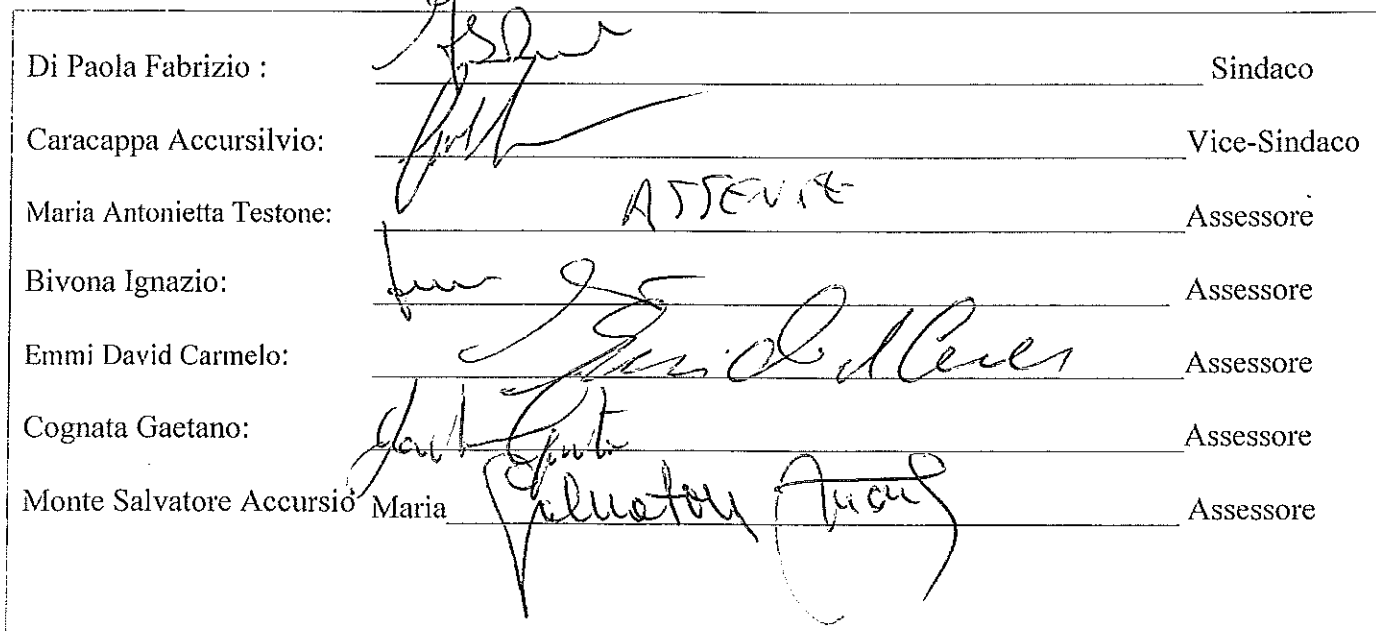 Di Paola Fabrizio : Sindaco
Caracappa Accursilvio: Vice-Sindaco
Maria Antonietta Testone: ASSENTE Assessore
Bivona Ignazio: Assessore
Emmi David Carmelo: Assessore
Cognata Gaetano: Assessore
Monte Salvatore Accursio Maria Salvatore Assessore